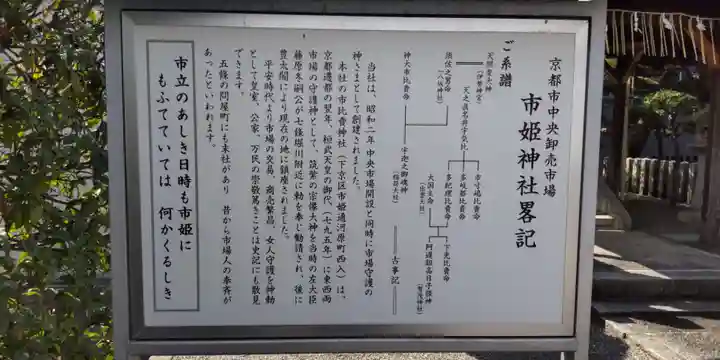 京都市中央卸売市場
市姫神社畧記
ご系譜
天照皇大神
（伊勢神宮）
須佐之男命
（八坂神社）
神大市比賣命
天之真名井宇気比
市寸嶋比賣命
多岐都比賣命
多紀理比賣命
大国主命
（出雲大社）
宇迦之御魂神
（稲荷大社）
下光比賣命
阿遅鉏高日子根神
（賀茂神社）
古事記
当社は、昭和二年中央市場開設と同時に市場守護の
神さまとして創建されました。
本社の市比賣神社（下京区市姫通河原町西入）は、
京都遷都の翌年、桓武天皇の御代（七九五年）に東西両
市場の守護神として、筑紫の宗像大神を当時の左大臣
藤原冬嗣公が七條堀川附近に勅を奉じ勧請され、後に
豊太閤により現在の地に鎮座されました。
平安時代より市場の交易、商売繁昌、女人守護を神勅
として皇室、公家、万民の崇敬篤きことは史記にも散見
できます。
五條の問屋町にも末社があり 昔から市場人の奉斉が
あったといわれます。
市立のあしき日時も市姫に
もふてていては 何かくるしき